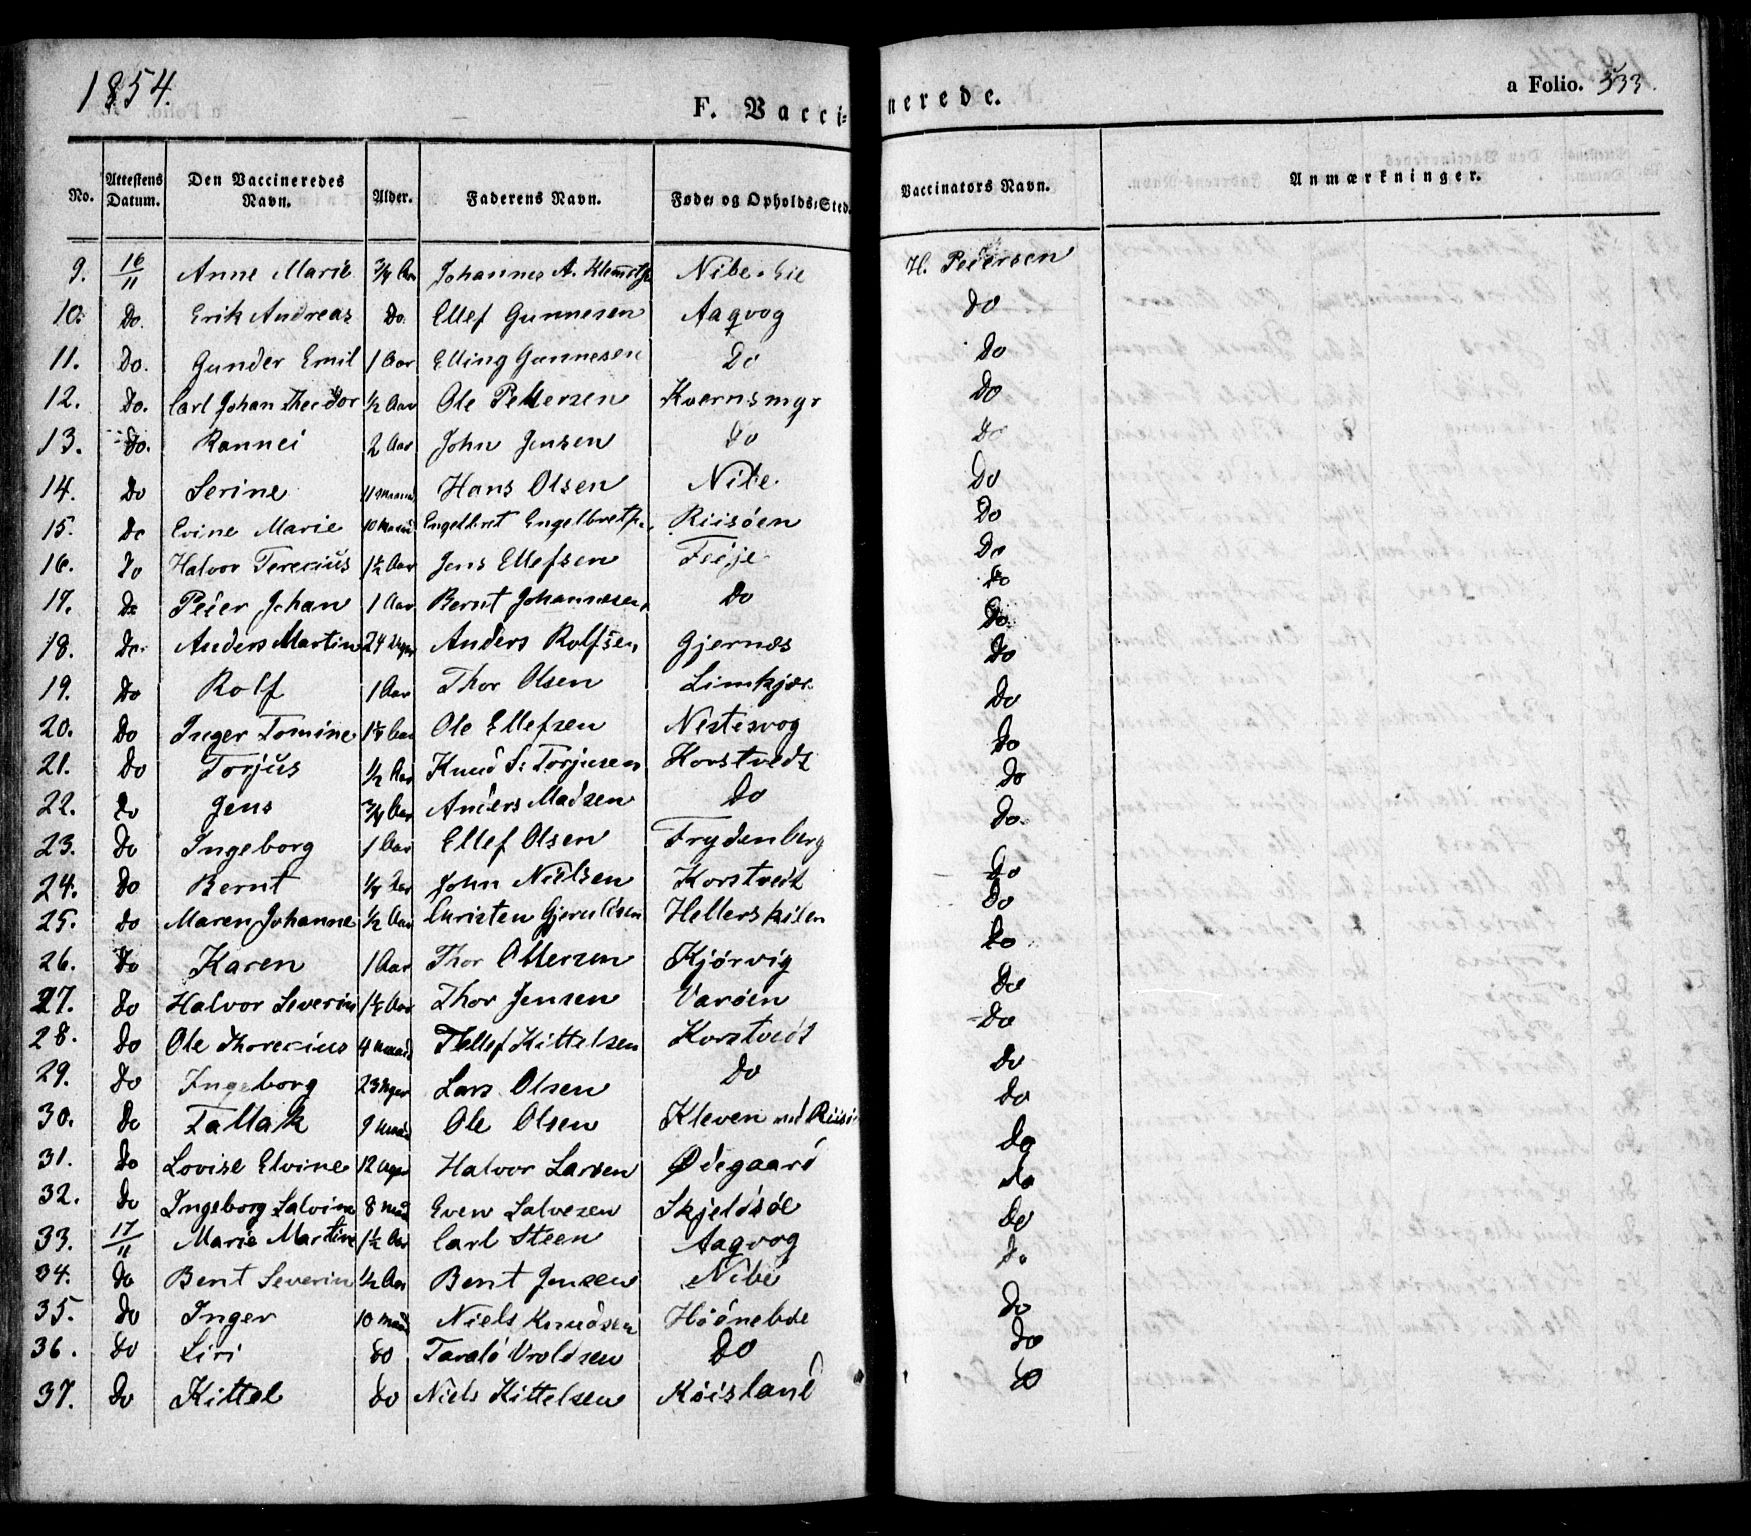 1854.
F. Vaccinerede.
a Folio. 333.
No. | Attestens Datum. | Den Vaccineredes Navn. | Alder. | Faderens Navn. | Føde- og Opholds-Sted. | Vaccinators Navn. | Anmærkninger.
9. 16/11 Anne Marie 3/4 Aar Johannes A. Nibe H. Pedersen
10. Do. Erik Andreas Do. Ellef Gunnesen Aaqvog Do
11. Do. Gunder Emil 1 Aar Elling Gunnesen Do Do
12. Do. Carl Johan Theodor 1/2 Aar Ole Pettersen Kvernsmyr Do
13. Do. Rannei 2 Aar John Jensen Do Do
14. Do Serine 11 Hans Olsen Nibe Do
15. Do Evine Marie 10 Engelbret Riisöen Do
16. Do Halvor Terecius 1 1/2 Aar Jens Ellefsen Do
17. Do Peter Johan 1 Aar Bernt Johannesen Do Do
18. Do Anders Martin 24 Uger Anders Rolfsen Gjernes Do
19. Do Rolf 1 Aar Thor Olsen Limkjær Do
20. Do Inger Tomine Aar Ole Ellefsen Nestesvog Do
21. Do Torjus 1/2 Aar Knud S. Torjusen Korstvedt Do
22. Do Jens 3/4 Aar Anders Madsen Do Do
23. Do Ingeborg 1 Aar Ellef Olsen Frydenberg Do
24. Do Bernt 1/4 Aar John Nielsen Korstvedt Do
25. Do Maren Johanne 1/2 Aar Christen Gjeruldsen Hellerskilen Do
26. Do Karen 1 Aar Thor Ottersen Kjørvig Do
27. Do Halvor Severin Aar Thor Jensen Varöen Do
28. Do Ole Thorecius 4 Tellef Kittelsen Korstvedt Do
29. Do Ingeborg 23 Uger Lars Olsen Do Do
30. Do Tallak 9 Ole Olsen Kleven Do
31. Do Lovise Elvine 12 Uger Halvor Larsen Ødegaard Do
32. Do Ingeborg Salvine 8 Even Salvesen Skjeldsöe Do
33. 17/11 Marie Martine 1 1/2 Aar Carl Steen Aaqvog Do
34. Do Bent Severin 1/2 Aar Bent Jensen Nibe Do
35. Do Inger 10 Niels Knudsen Høöneboe Do
36. Do Siri Do Tarald Vroldsen Do Do
37. Do Kittel Do Niels Kittelsen Røisland Do